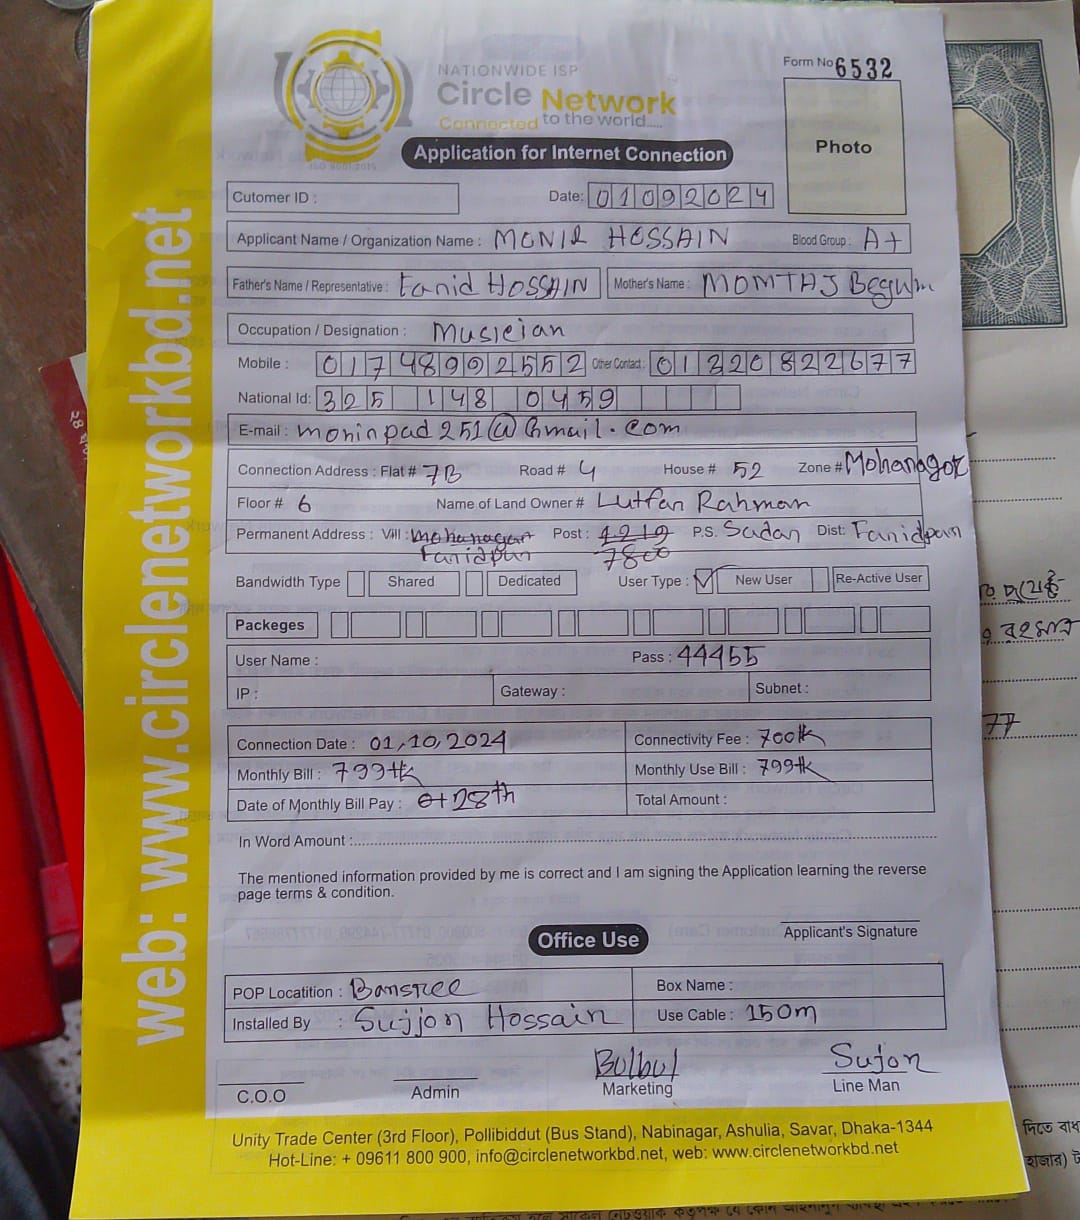 NATIONWIDE ISP
Circle Network
Connected to the world.....
ISO 9001:2015
Form No 6532
Photo
Application for Internet Connection
Cutomer ID :
Date: 01092024
Applicant Name / Organization Name : MONIR HOSSAIN Blood Group : A+
Father's Name / Representative : Farid HOSSAIN Mother's Name : MOMTAJ Begum
Occupation / Designation : Musician
Mobile : 01748992552 Other Contact : 01320822677
National Id: 325 148 0459
E-mail : monirpad251@gmail.com
Connection Address : Flat # 7B Road # 4 House # 52 Zone # Mohanagor
Floor # 6 Name of Land Owner # Lutfar Rahman
Permanent Address : Vill : Mohanagar Post : 1219 P.S. Sadar Dist: Faridpur
Faridpur 7800
Bandwidth Type Shared Dedicated User Type : ✓ New User Re-Active User
Packeges
User Name : Pass : 44455
IP : Gateway : Subnet :
Connection Date : 01,10,2024 Connectivity Fee : 700tk
Monthly Bill : 799tk Monthly Use Bill : 799tk
Date of Monthly Bill Pay : 28th Total Amount :
In Word Amount :
The mentioned information provided by me is correct and I am signing the Application learning the reverse
page terms & condition.
Applicant's Signature
Office Use
POP Locatition : Bansree Box Name :
Installed By : Sujjon Hossain Use Cable : 150m
Bulbul Sujon
C.O.O Admin Marketing Line Man
Unity Trade Center (3rd Floor), Pollibiddut (Bus Stand), Nabinagar, Ashulia, Savar, Dhaka-1344
Hot-Line: + 09611 800 900, info@circlenetworkbd.net, web: www.circlenetworkbd.net
web: www.circlenetworkbd.net
77
দিতে বাধ
হাজার) ট